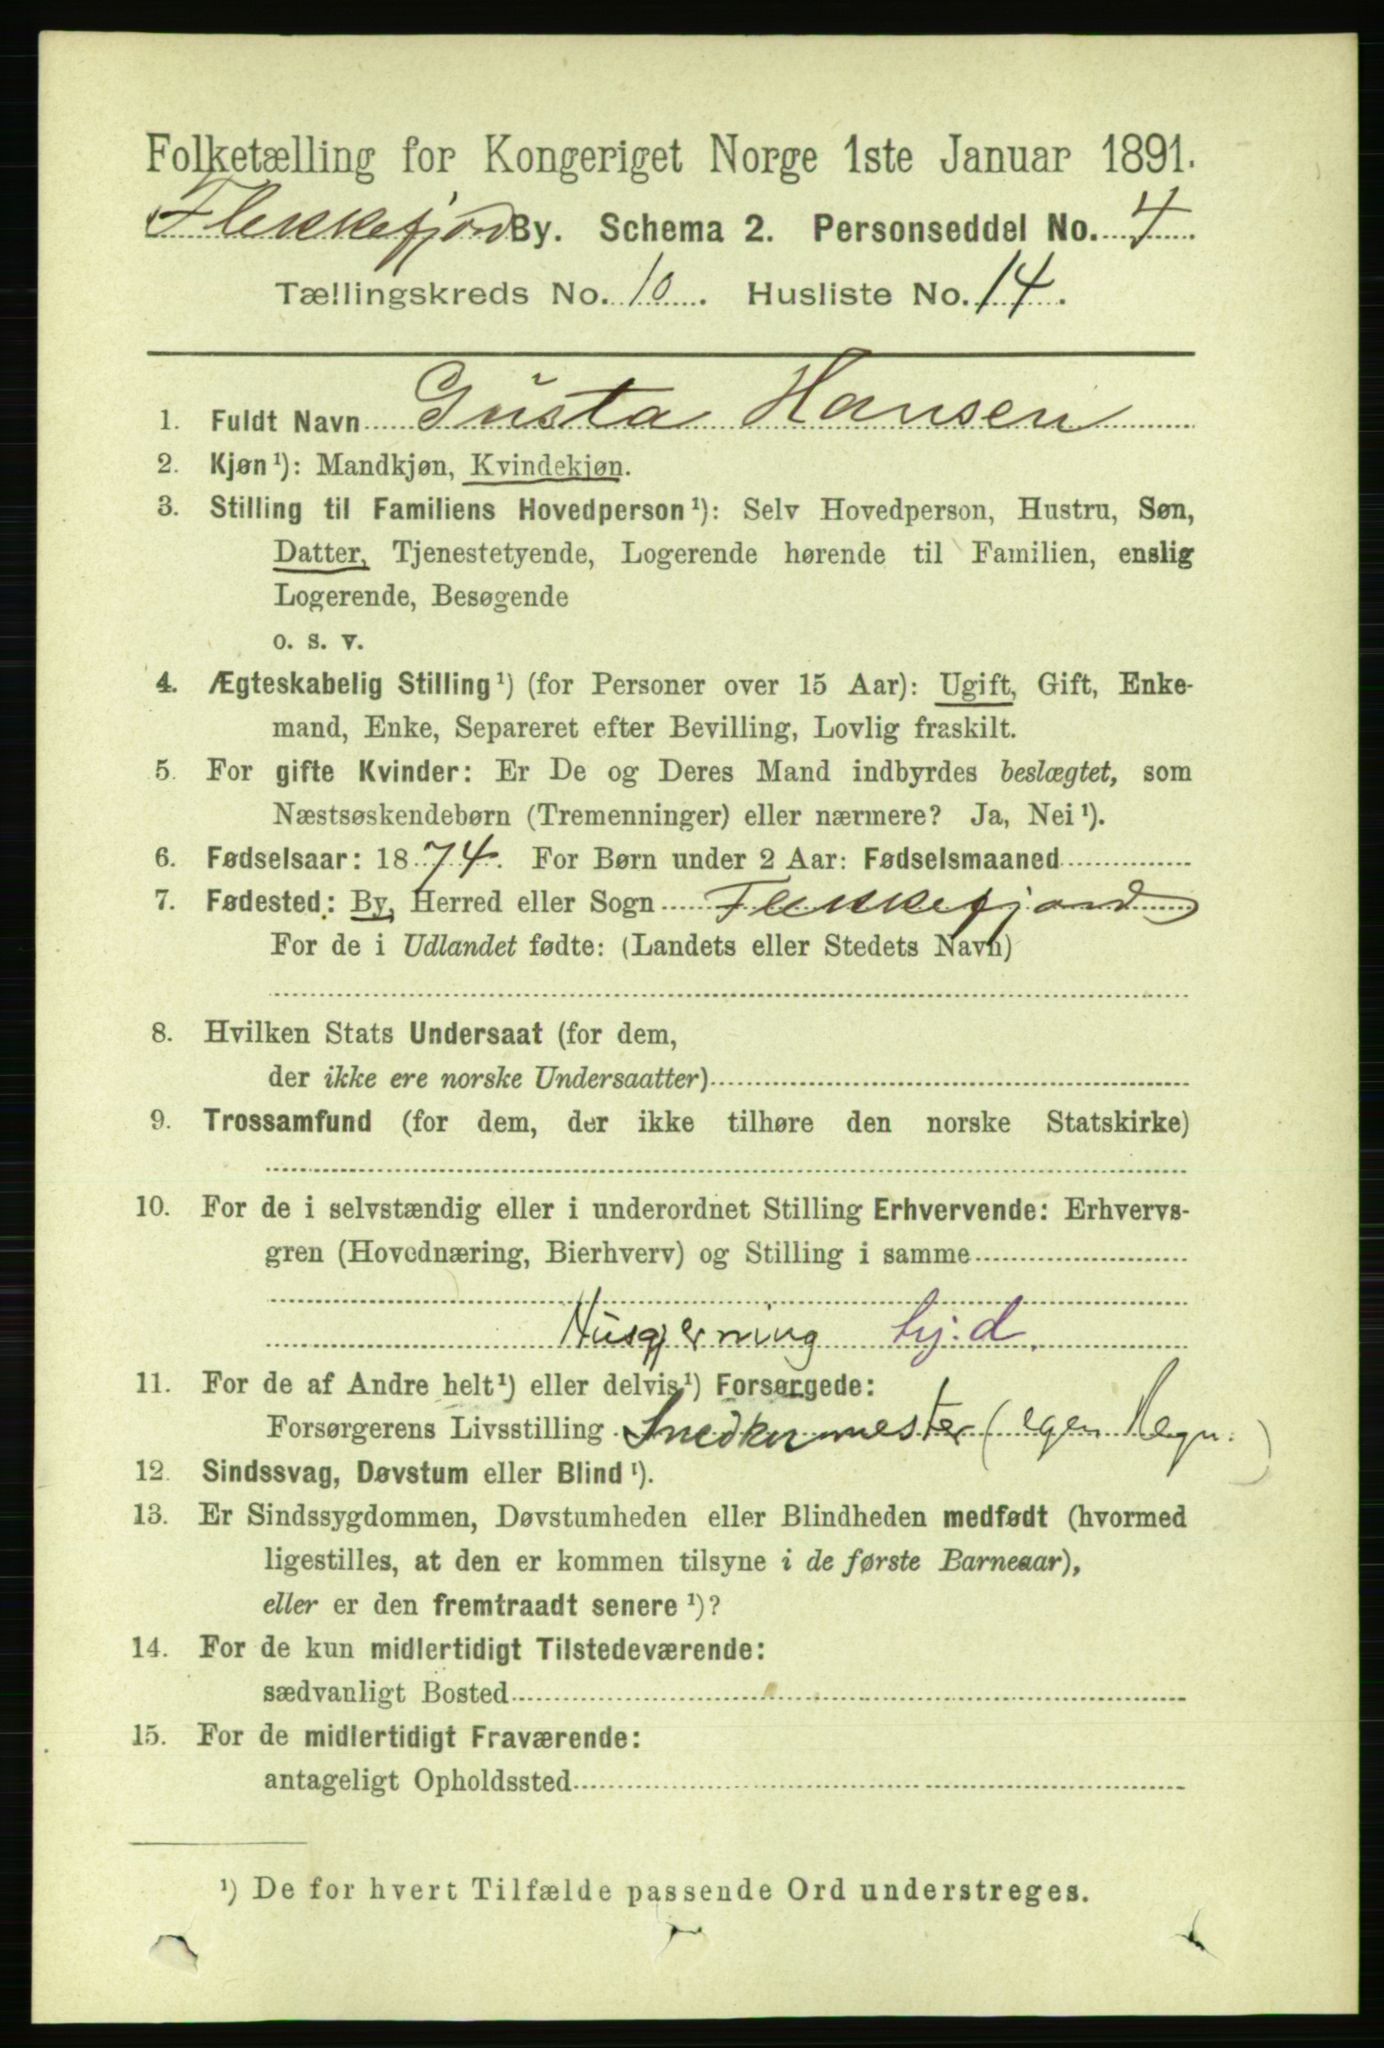 Folketælling for Kongeriget Norge 1ste Januar 1891.
Flekkefjord By. Schema 2. Personseddel No. 4
Tællingskreds No. 10. Husliste No. 14.
1. Fuldt Navn Gusta Hansen
2. Kjøn ¹): Mandkjøn, Kvindekjøn.
3. Stilling til Familiens Hovedperson ¹): Selv Hovedperson, Hustru, Søn,
Datter, Tjenestetyende, Logerende hørende til Familien, enslig
Logerende, Besøgende
o. s. v.
4. Ægteskabelig Stilling ¹) (for Personer over 15 Aar): Ugift, Gift, Enke-
mand, Enke, Separeret efter Bevilling, Lovlig fraskilt.
5. For gifte Kvinder: Er De og Deres Mand indbyrdes beslægtet, som
Næstsøskendebørn (Tremenninger) eller nærmere? Ja, Nei ¹).
6. Fødselsaar: 1874. For Børn under 2 Aar: Fødselsmaaned
7. Fødested: By, Herred eller Sogn Flekkefjord
For de i Udlandet fødte: (Landets eller Stedets Navn)
8. Hvilken Stats Undersaat (for dem,
der ikke ere norske Undersaatter)
9. Trossamfund (for dem, der ikke tilhøre den norske Statskirke)
10. For de i selvstændig eller i underordnet Stilling Erhvervende: Erhvervs-
gren (Hovednæring, Bierhverv) og Stilling i samme
Husgjerning hj. d.
11. For de af Andre helt ¹) eller delvis ¹) Forsørgede:
Forsørgerens Livsstilling Snedkermester (egen Regn.)
12. Sindssvag, Døvstum eller Blind ¹).
13. Er Sindssygdommen, Døvstumheden eller Blindheden medfødt (hvormed
ligestilles, at den er kommen tilsyne i de første Barneaar),
eller er den fremtraadt senere ¹)?
14. For de kun midlertidigt Tilstedeværende:
sædvanligt Bosted
15. For de midlertidigt Fraværende:
antageligt Opholdssted
¹) De for hvert Tilfælde passende Ord understreges.